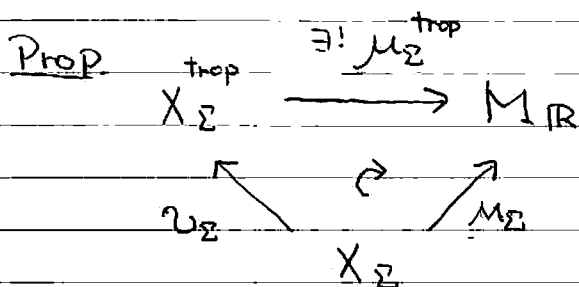 Prop
∃! μ_Σ^trop
X_Σ^trop → M_ℝ
υ_Σ ↷ μ_Σ
X_Σ